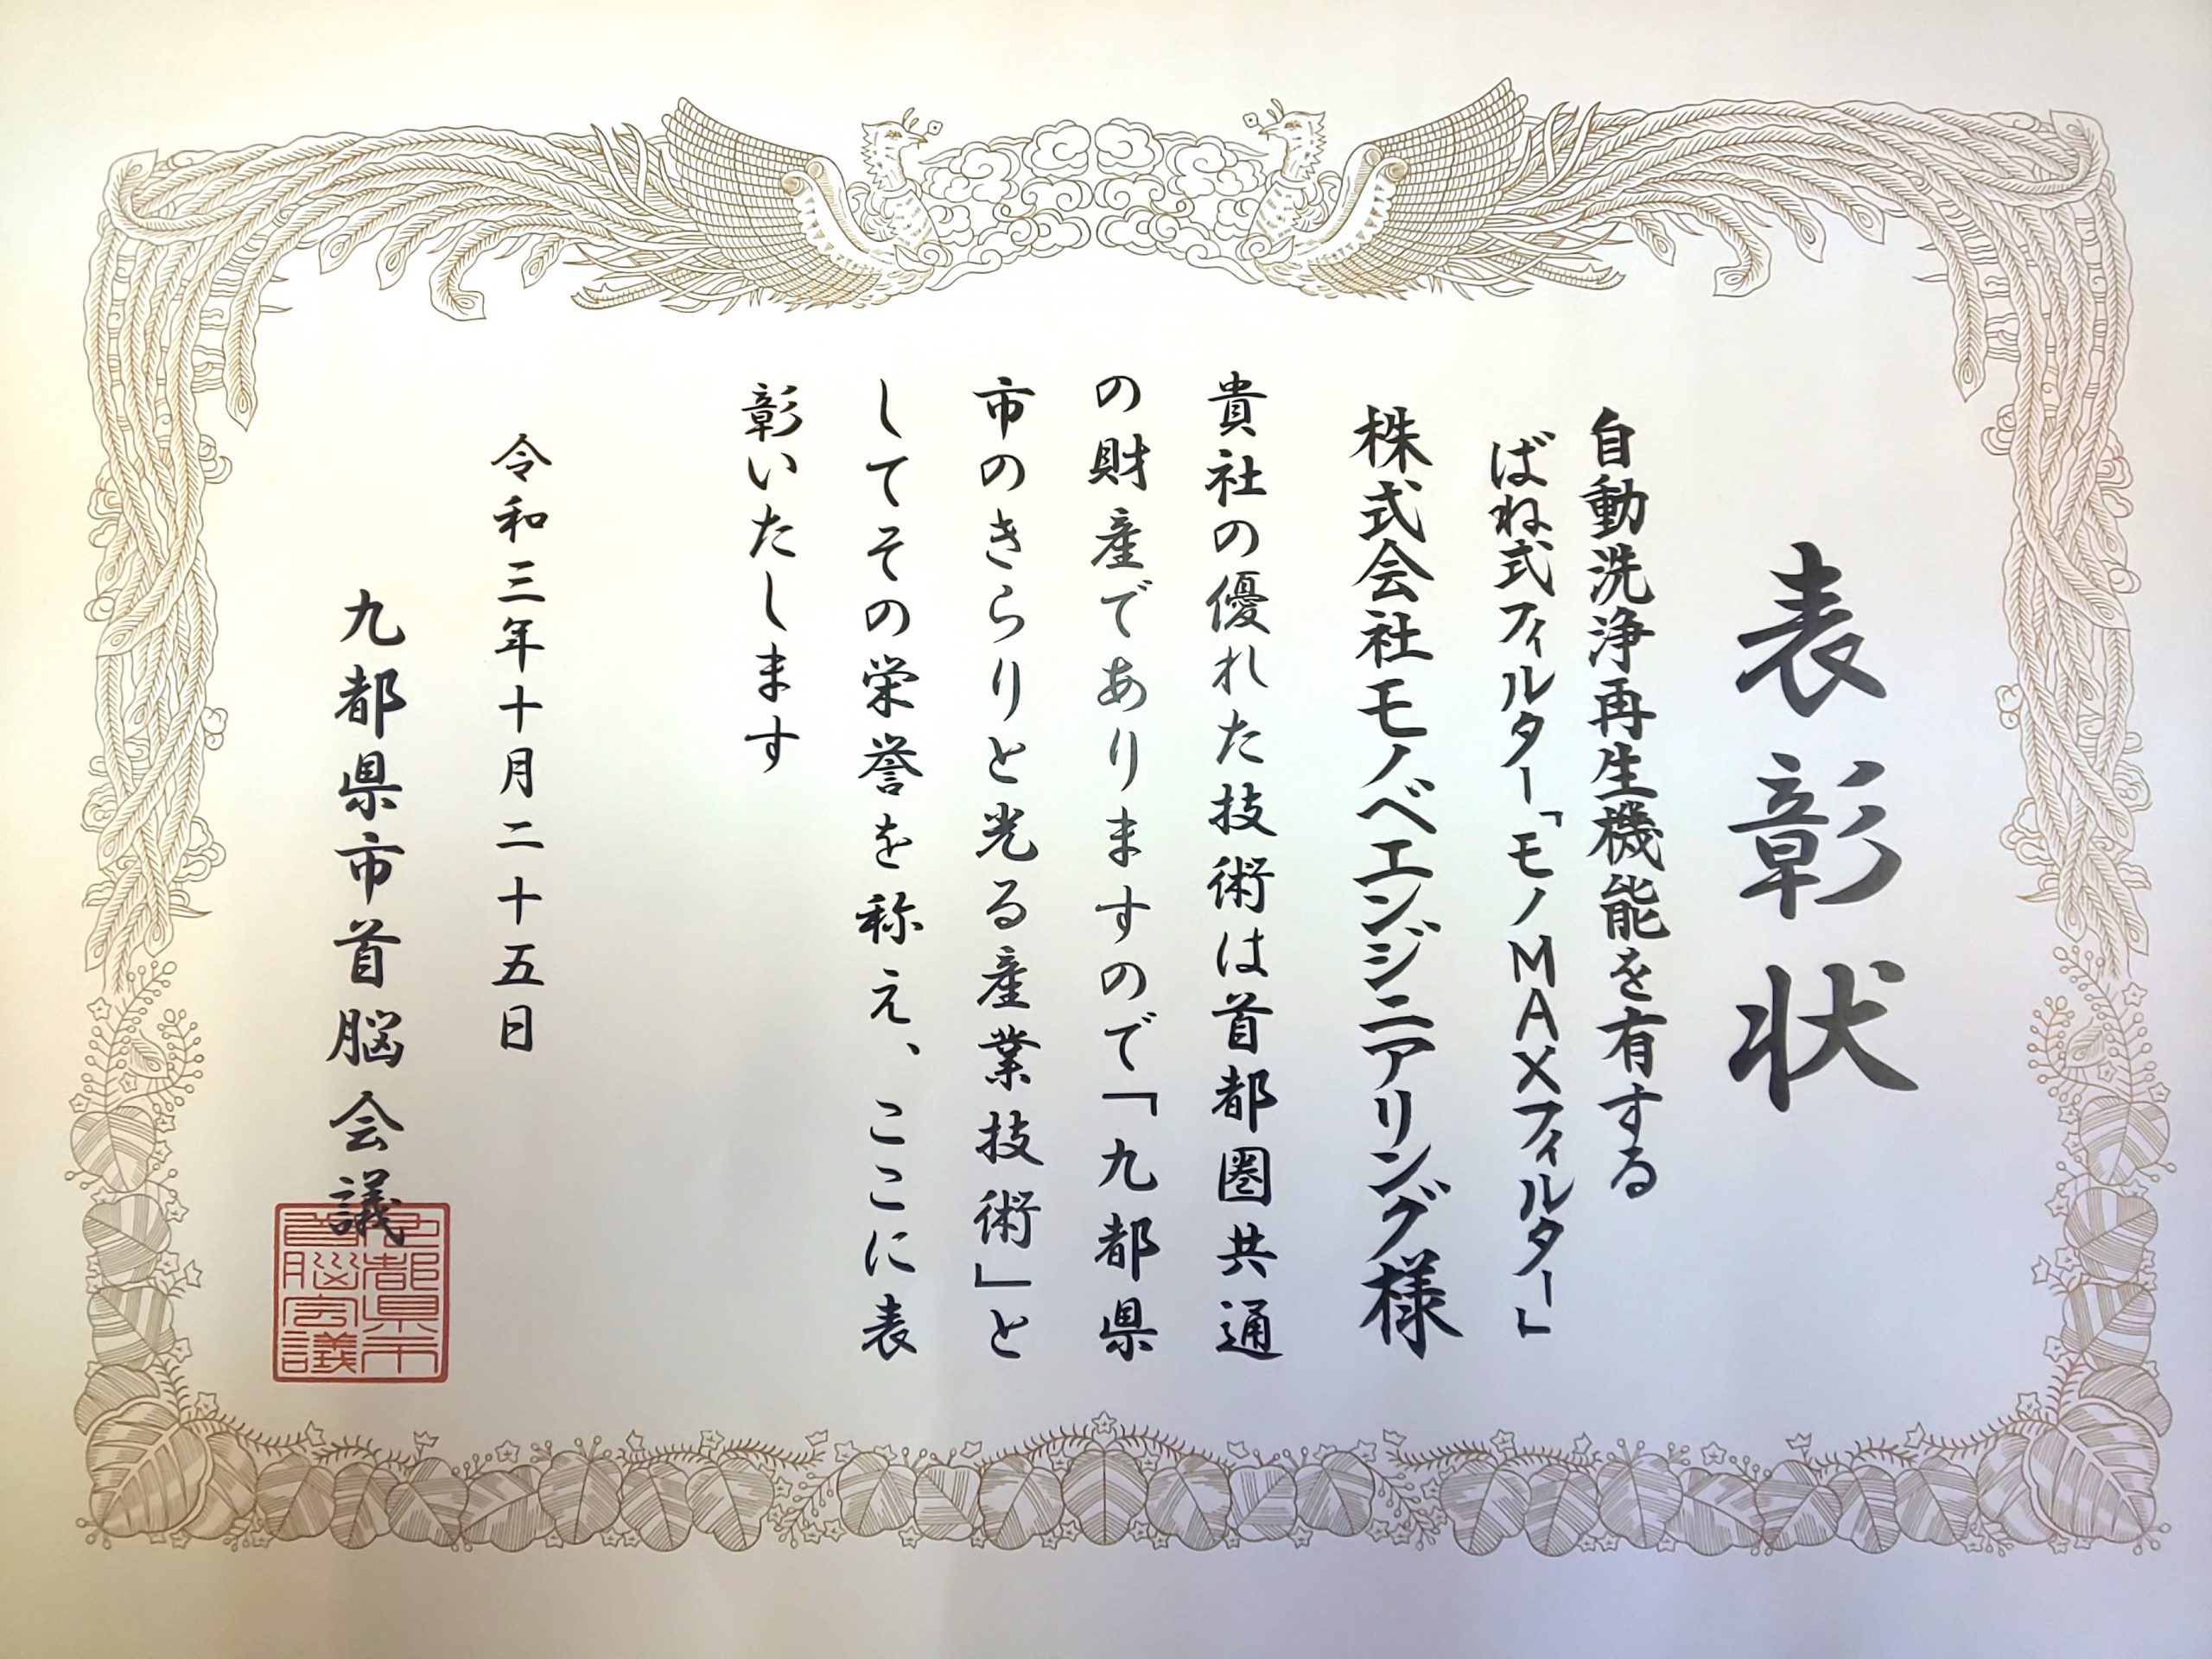 表彰状
自動洗浄再生機能を有する
ばね式フィルター「モノMAXフィルター」
株式会社モノベエンジニアリング様
貴社の優れた技術は首都圏共通
の財産でありますので「九都県
市のきらりと光る産業技術」と
してその栄誉を称え、ここに表
彰いたします
令和三年十月二十五日
九都県市首脳会議
九都県市
首脳会議